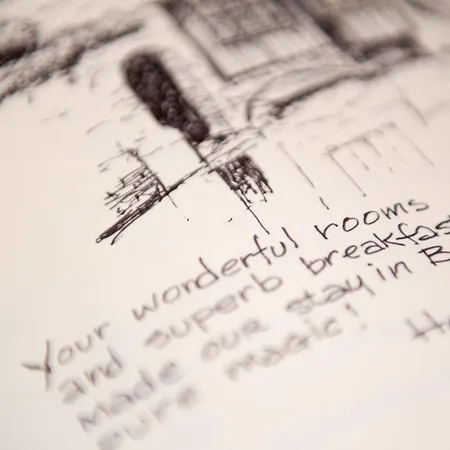 Your wonderful rooms
and superb breakfas
made our stay in B
pure magic!
He